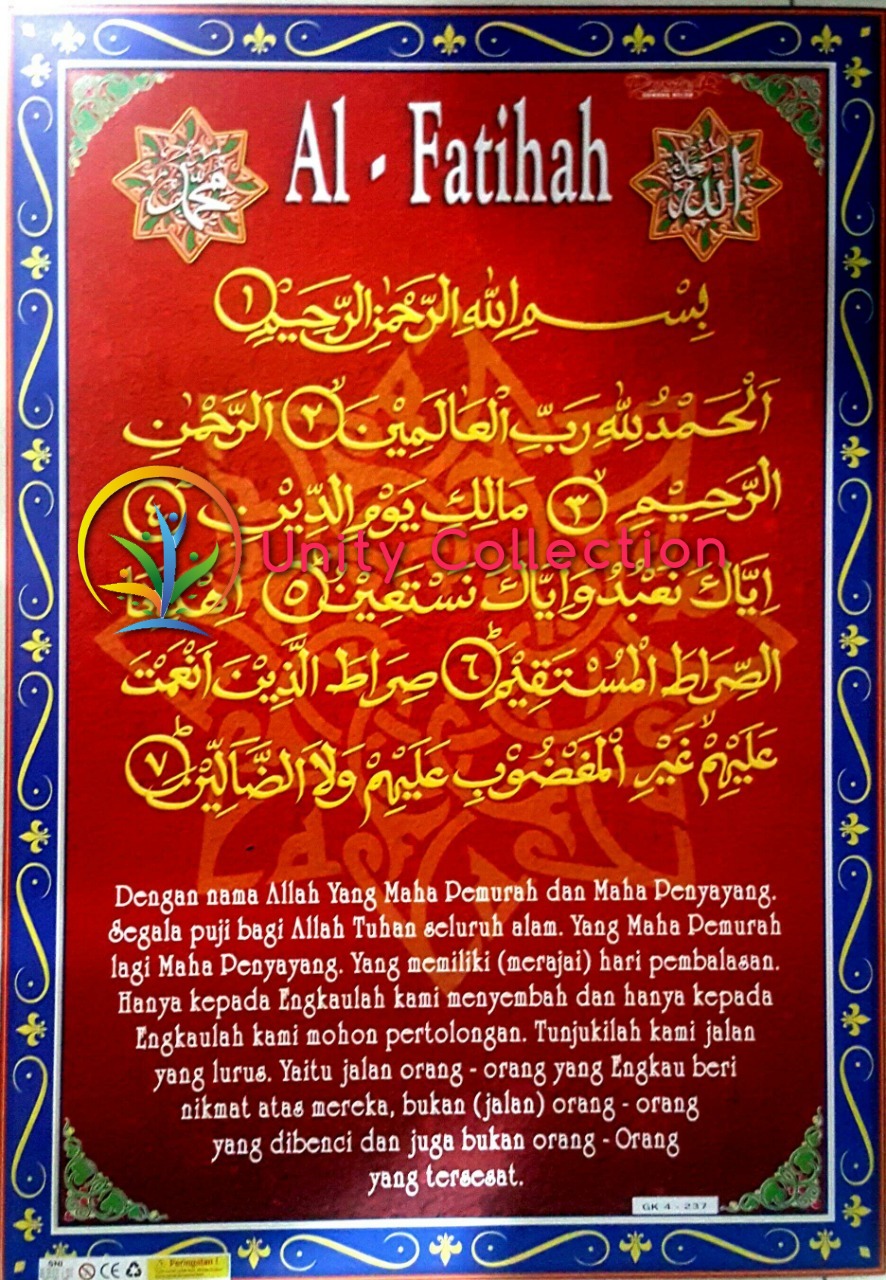 Al - Fatihah
محمد
الله
بِسْمِ اللهِ الرَّحْمٰنِ الرَّحِيْمِ ١
اَلْحَمْدُ لِلّٰهِ رَبِّ الْعَالَمِيْنَ ٢ اَلرَّحْمٰنِ
الرَّحِيْمِ ٣ مَالِكِ يَوْمِ الدِّيْنِ ٤
Unity Collection
اِيَّاكَ نَعْبُدُ وَاِيَّاكَ نَسْتَعِيْنُ ٥ اِهْدِنَا
الصِّرَاطَ الْمُسْتَقِيْمَ ٦ صِرَاطَ الَّذِيْنَ اَنْعَمْتَ
عَلَيْهِمْ غَيْرِ الْمَغْضُوْبِ عَلَيْهِمْ وَلاَ الضَّالِّيْنَ ٧
Dengan nama Allah Yang Maha Pemurah dan Maha Penyayang.
Segala puji bagi Allah Tuhan seluruh alam. Yang Maha Pemurah
lagi Maha Penyayang. Yang memiliki (merajai) hari pembalasan.
Hanya kepada Engkaulah kami menyembah dan hanya kepada
Engkaulah kami mohon pertolongan. Tunjukilah kami jalan
yang lurus. Yaitu jalan orang - orang yang Engkau beri
nikmat atas mereka, bukan (jalan) orang - orang
yang dibenci dan juga bukan orang - Orang
yang tersesat.
GK 4 - 237
SNI
CE
Peringatan !